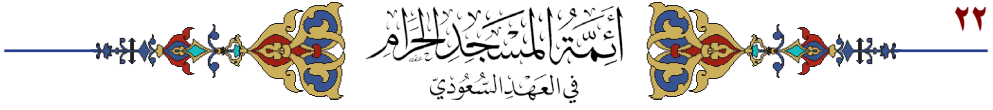 ٢٢
أَئِمَّةُ المَسْجِدِ الحَرَامِ
فِي العَهْدِ السُّعُودِيّ